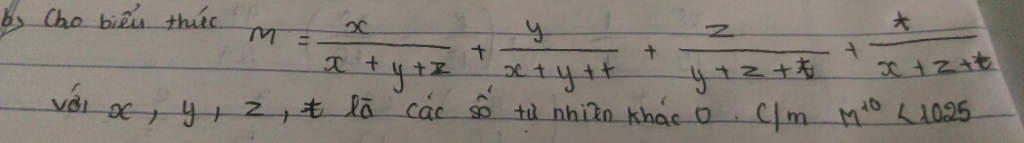 b, Cho biểu thức M = x / (x + y + z) + y / (x + y + t) + z / (y + z + t) + t / (x + z + t)
với x, y, z, t là các số tự nhiên khác 0. C/m M^10 < 1025